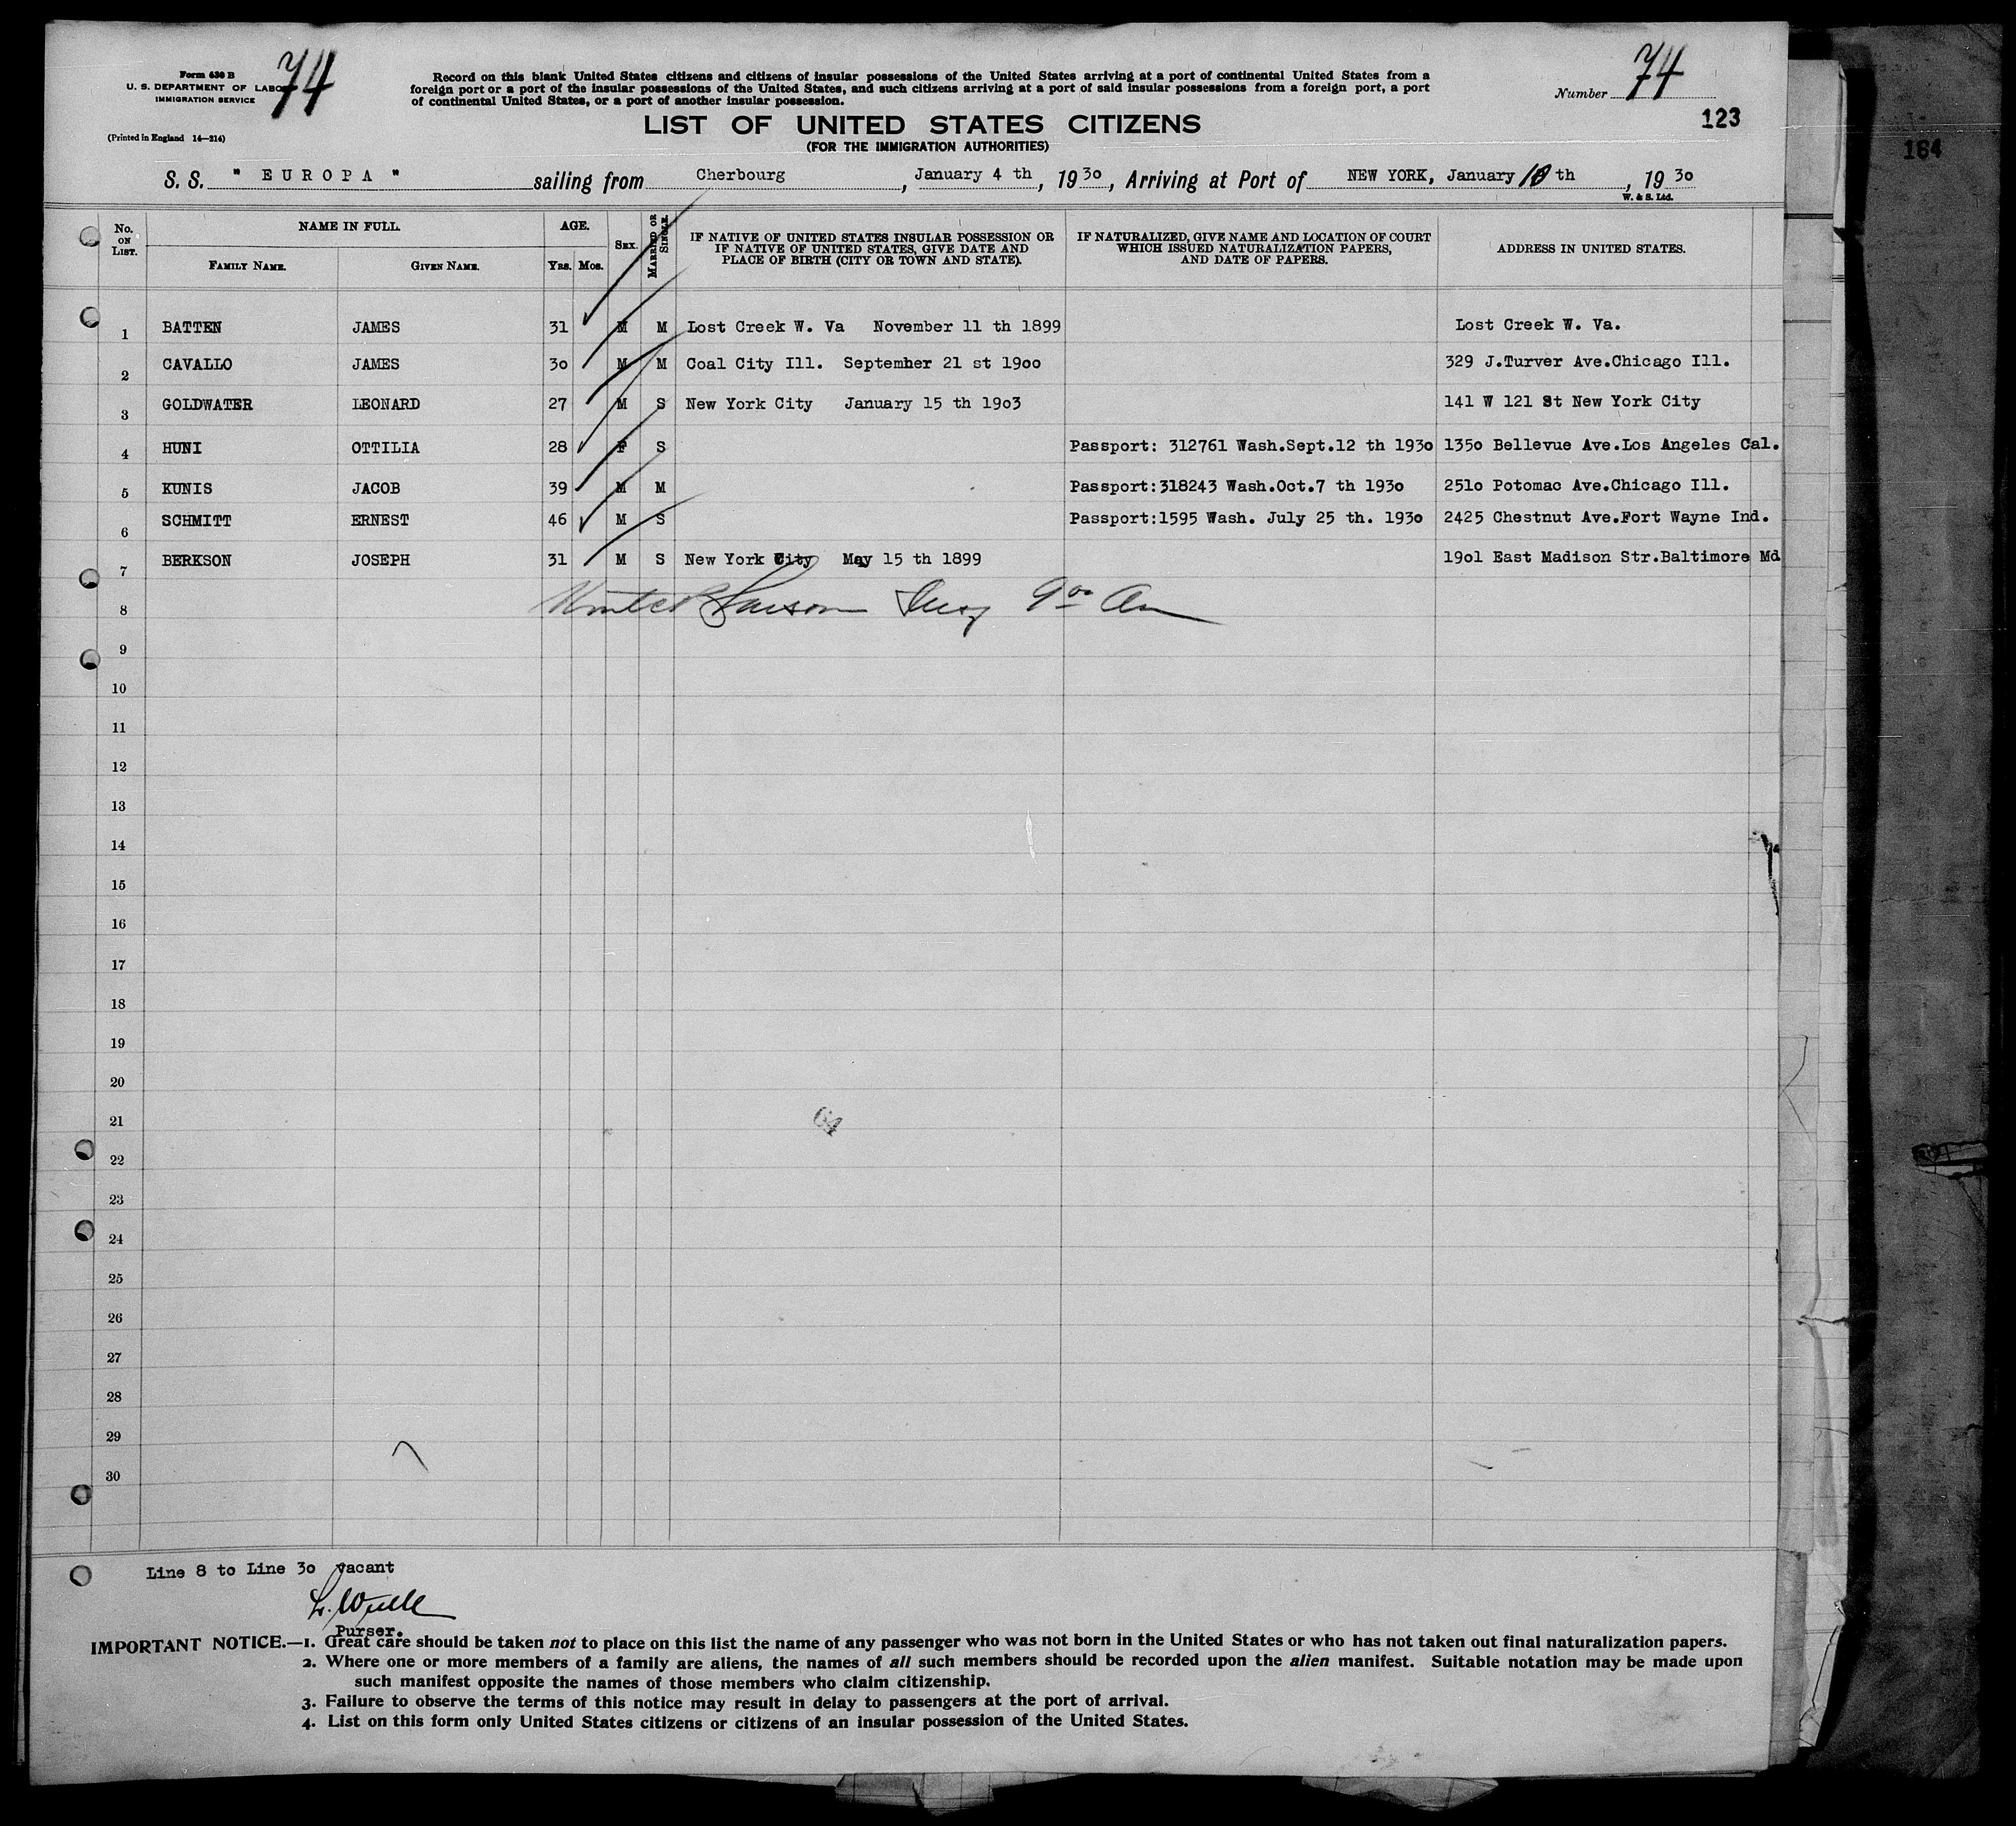 Form 630 B
U. S. DEPARTMENT OF LABOR
IMMIGRATION SERVICE
(Printed in England 14—214)
74
Record on this blank United States citizens and citizens of insular possessions of the United States arriving at a port of continental United States from a
foreign port or a port of the insular possessions of the United States, and such citizens arriving at a port of said insular possessions from a foreign port, a port
of continental United States, or a port of another insular possession.
Number 74
123
164
LIST OF UNITED STATES CITIZENS
(FOR THE IMMIGRATION AUTHORITIES)
S. S. " EUROPA " sailing from Cherbourg, January 4 th, 1930, Arriving at Port of NEW YORK, January 10 th, 1930
W. & S. Ltd.
No. ON LIST. NAME IN FULL. AGE. SEX. MARRIED OR SINGLE. IF NATIVE OF UNITED STATES INSULAR POSSESSION OR IF NATIVE OF UNITED STATES, GIVE DATE AND PLACE OF BIRTH (CITY OR TOWN AND STATE). IF NATURALIZED, GIVE NAME AND LOCATION OF COURT WHICH ISSUED NATURALIZATION PAPERS, AND DATE OF PAPERS. ADDRESS IN UNITED STATES.
FAMILY NAME. GIVEN NAME. YRS. MOS.
1 BATTEN JAMES 31 M M Lost Creek W. Va November 11 th 1899 Lost Creek W. Va.
2 CAVALLO JAMES 30 M M Coal City Ill. September 21 st 1900 329 J.Turver Ave.Chicago Ill.
3 GOLDWATER LEONARD 27 M S New York City January 15 th 1903 141 W 121 St New York City
4 HUNI OTTILIA 28 F S Passport: 312761 Wash.Sept.12 th 1930 1350 Bellevue Ave.Los Angeles Cal.
5 KUNIS JACOB 39 M M Passport:318243 Wash.Oct.7 th 1930 2510 Potomac Ave.Chicago Ill.
6 SCHMITT ERNEST 46 M S Passport:1595 Wash. July 25 th. 1930 2425 Chestnut Ave.Fort Wayne Ind.
7 BERKSON JOSEPH 31 M S New York City May 15 th 1899 1901 East Madison Str.Baltimore Md
8 Insp 9 00 Am
9
10
11
12
13
14
15
16
17
18
19
20
21
64
22
23
24
25
26
27
28
29
30
Line 8 to Line 30 vacant
Purser.
IMPORTANT NOTICE.—1. Great care should be taken not to place on this list the name of any passenger who was not born in the United States or who has not taken out final naturalization papers.
2. Where one or more members of a family are aliens, the names of all such members should be recorded upon the alien manifest. Suitable notation may be made upon
such manifest opposite the names of those members who claim citizenship.
3. Failure to observe the terms of this notice may result in delay to passengers at the port of arrival.
4. List on this form only United States citizens or citizens of an insular possession of the United States.